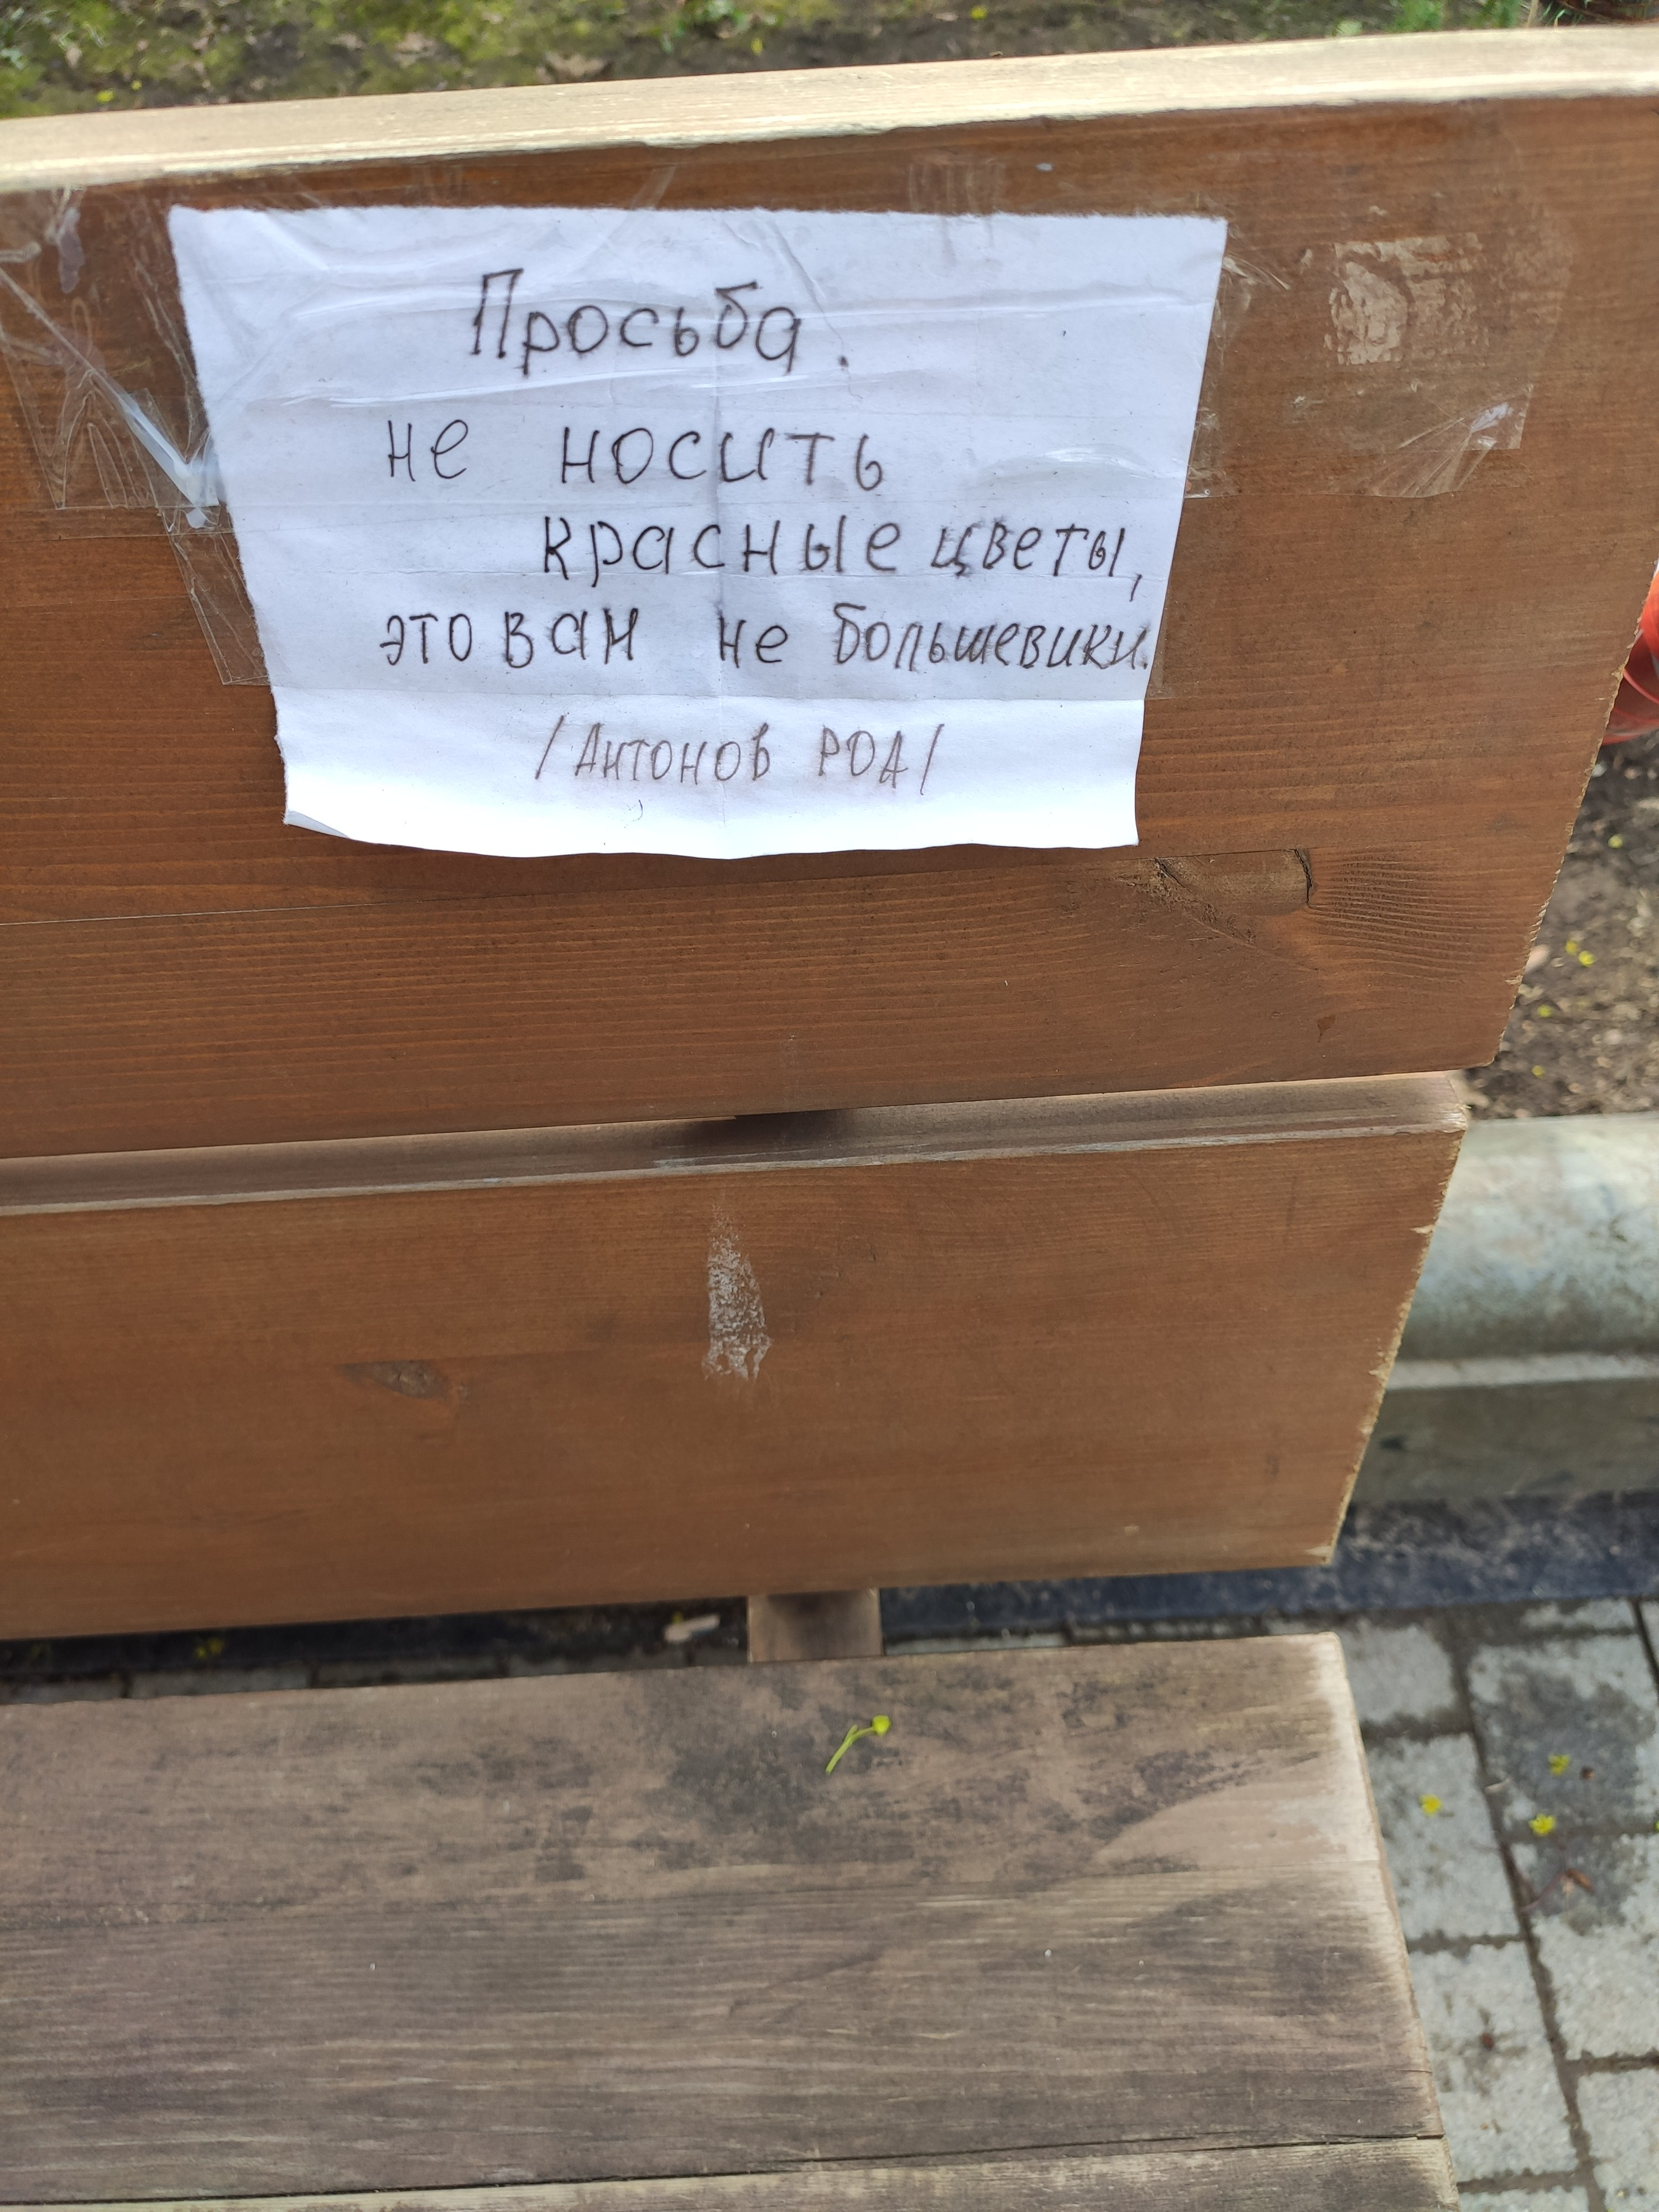 Просьба.
не носить
красные цветы,
это вам не большевики.
/Антонов РОА/